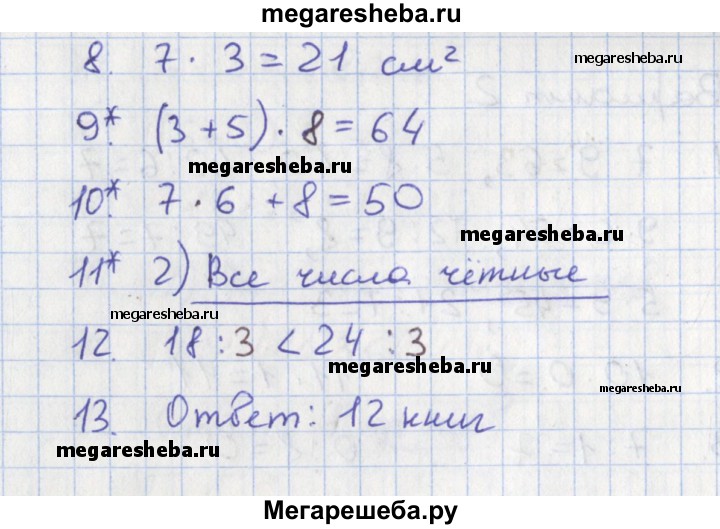 megaresheba.ru
8. 7 · 3 = 21 см²
megaresheba.ru
9.* (3 + 5) · 8 = 64
megaresheba.ru
10.* 7 · 6 + 8 = 50
megaresheba.ru
11* 2) Все числа чётные
megaresheba.ru
12. 18 : 3 < 24 : 3
megaresheba.ru
13. Ответ: 12 книг
megaresheba.ru
Мегарешеба.ру